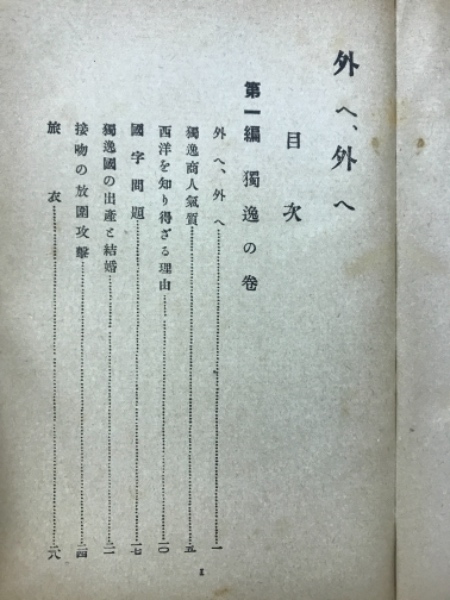 外へ、外へ
目次
第一編 獨逸の卷
外へ、外へ……一
獨逸商人氣質……五
西洋を知り得ざる理由……一〇
國字問題……一七
獨逸國の出產と結婚……二一
接吻の放圍攻擊……二四
旅衣……二八
1